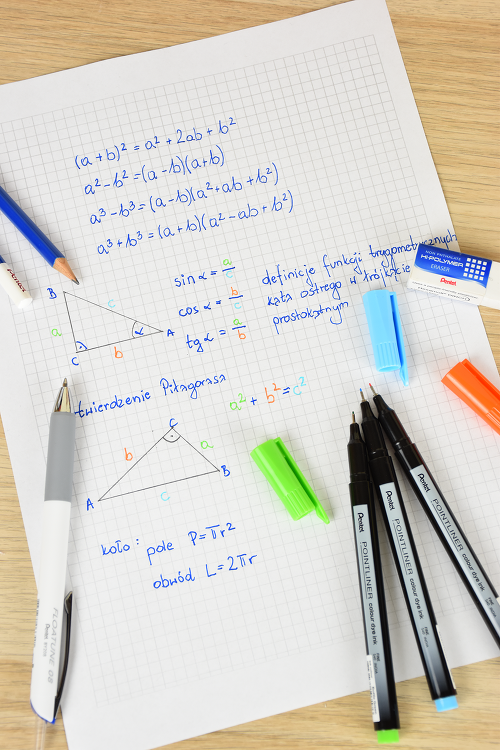 (a+b)² = a² + 2ab + b²
a² - b² = (a-b)(a+b)
a³ - b³ = (a-b)(a² + ab + b²)
a³ + b³ = (a+b)(a² - ab + b²)
sin α = a/c
cos α = b/c
tg α = a/b
definicje funkcji trygometrycznych
kąta ostrego w trójkącie
prostokątnym
B
c
a
α
A
b
C
twierdzenie Pitagorasa
a² + b² = c²
C
b
a
B
A
c
koło:
pole P = πr²
obwód L = 2πr
HI-POLYMER
ERASER
Pentel
Pentel POINTLINER colour dye ink
Pentel POINTLINER colour dye ink
Pentel POINTLINER colour dye ink
FLOATUNE 08
Pentel